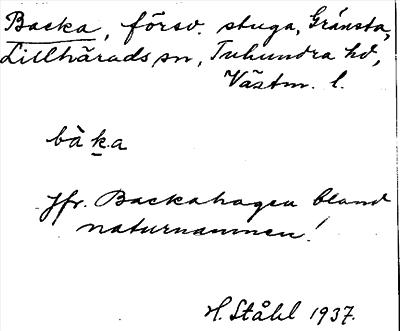 Backa, försv. stuga, Gränsta,
Lillhärads sn, Tuhundra hd,
Västm. l.
bàka
Jfr. Backahagen bland
naturnamnen!
H. Ståhl 1937.